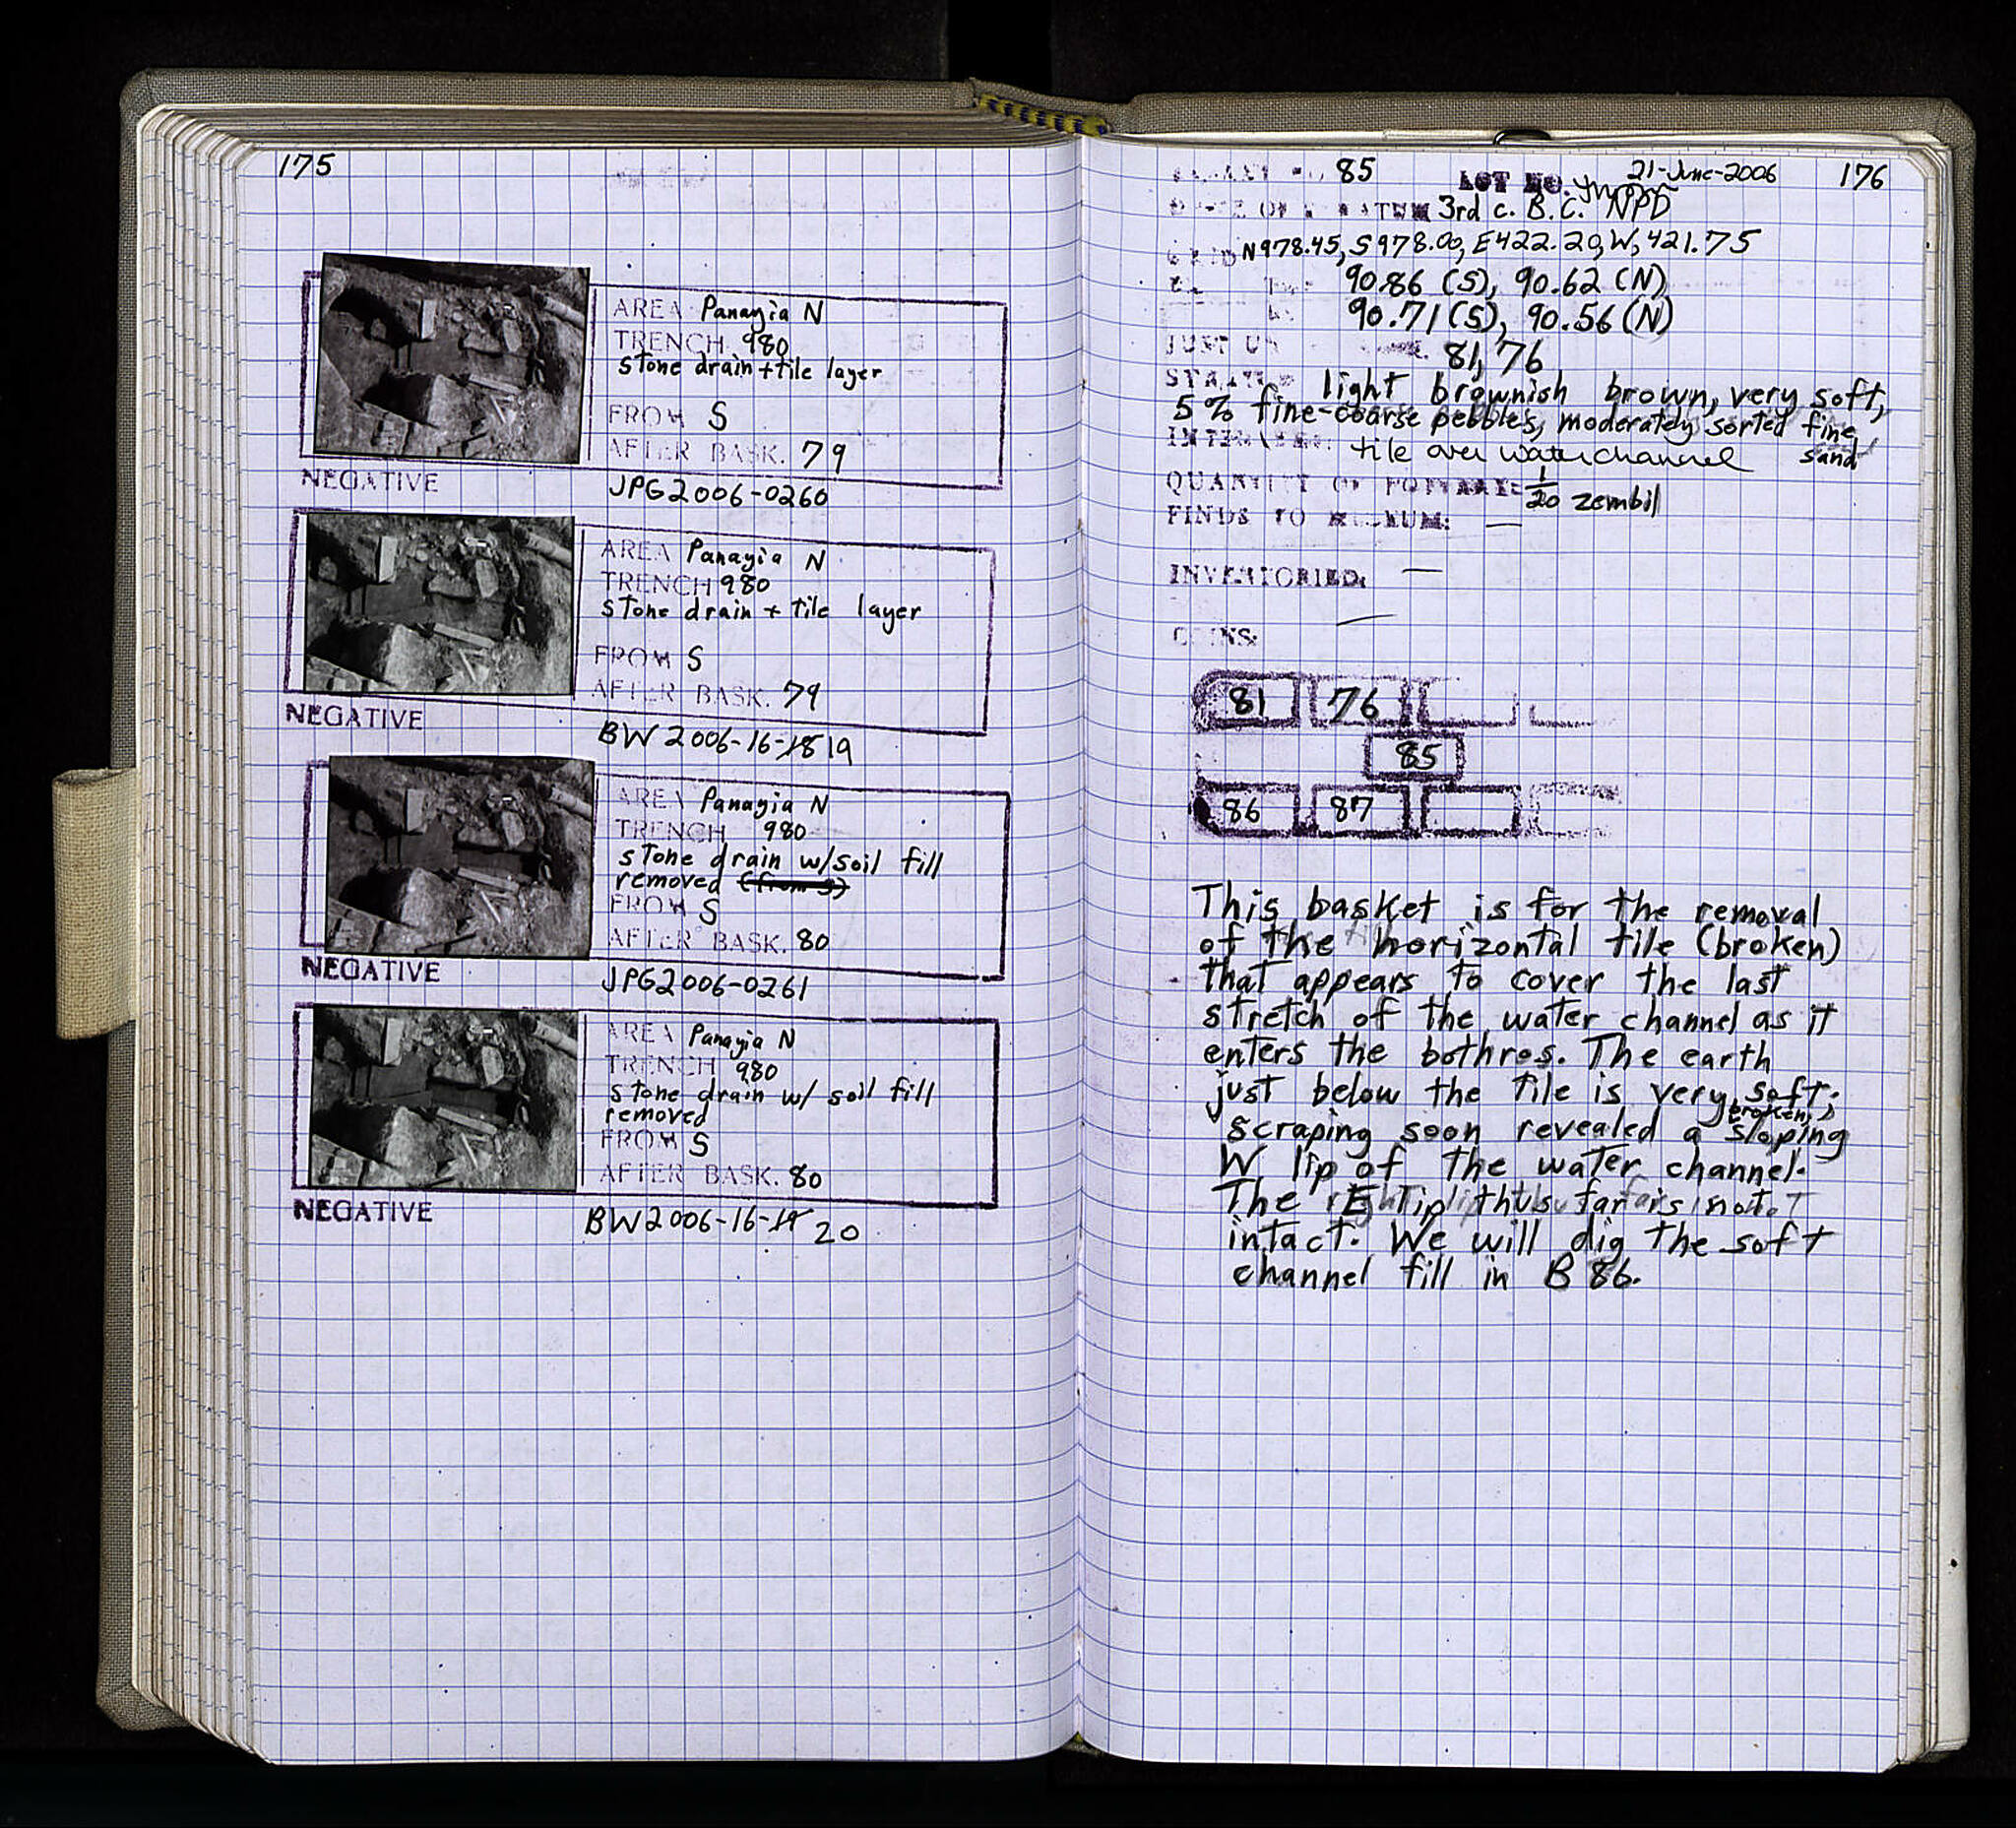 175
AREA Panayia N
TRENCH 980
stone drain + tile layer
FROM S
AFTER BASK. 79
NEGATIVE
JPG2006-0260
AREA Panayia N
TRENCH 980
stone drain + tile layer
FROM S
AFTER BASK. 79
NEGATIVE
BW 2006-16-18 19
AREA Panayia N
TRENCH 980
stone drain w/soil fill
removed (from S)
FROM S
AFTER BASK. 80
NEGATIVE
JPG2006-0261
AREA Panayia N
TRENCH 980
stone drain w/ soil fill
removed
FROM S
AFTER BASK. 80
NEGATIVE
BW2006-16-19 20
85 LOT NO. 21-June-2006 176
3rd c. B.C. NPD
GRID N978.45, S978.00, E422.20, W, 421.75
90.86 (S), 90.62 (N)
90.71 (S), 90.56 (N)
81, 76
light brownish brown, very soft,
5% fine-coarse pebbles, moderately sorted fine
sand
tile over water channel
QUANTITY OF POTTERY: 1/20 zembil
FINDS TO MUSEUM: —
INVENTORIED: —
COINS: —
81 76
85
86 87
This basket is for the removal
of the horizontal tile (broken)
that appears to cover the last
stretch of the water channel as it
enters the bothros. The earth
just below the tile is very soft.
Scraping soon revealed a broken, sloping
W lip of the water channel.
The E lip thus far is not
intact. We will dig the soft
channel fill in B 86.